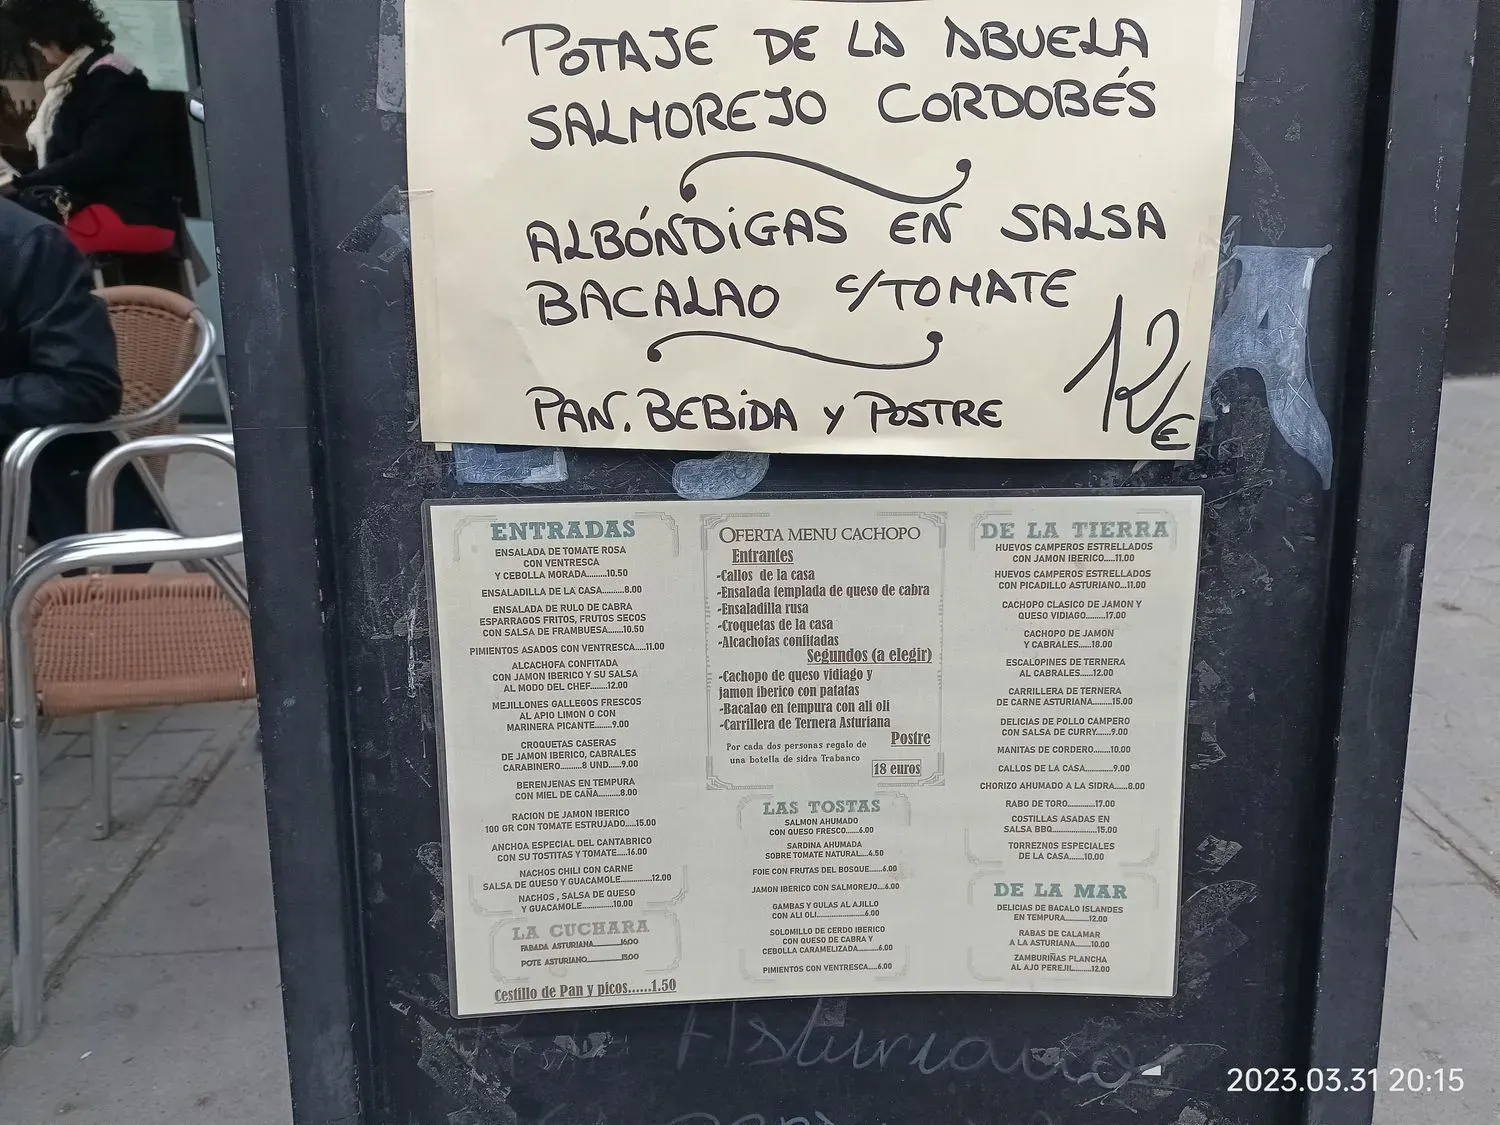 POTAJE DE LA ABUELA
SALMOREJO CORDOBÉS
ALBÓNDIGAS EN SALSA
BACALAO C/TOMATE
PAN, BEBIDA Y POSTRE
12€
ENTRADAS
ENSALADA DE TOMATE ROSA
CON VENTRESCA
Y CEBOLLA MORADA........10.50
ENSALADILLA DE LA CASA........8.00
ENSALADA DE RULO DE CABRA
ESPARRAGOS FRITOS, FRUTOS SECOS
CON SALSA DE FRAMBUESA.....10.50
PIMIENTOS ASADOS CON VENTRESCA.....11.00
ALCACHOFA CONFITADA
CON JAMON IBERICO Y SU SALSA
AL MODO DEL CHEF.......12.00
MEJILLONES GALLEGOS FRESCOS
AL APIO LIMON O CON
MARINERA PICANTE.......9.00
CROQUETAS CASERAS
DE JAMON IBERICO, CABRALES
CARABINERO.........8 UND....9.00
BERENJENAS EN TEMPURA
CON MIEL DE CAÑA.......8.00
RACION DE JAMON IBERICO
100 GR CON TOMATE ESTRUJADO.....15.00
ANCHOA ESPECIAL DEL CANTABRICO
CON SU TOSTITAS Y TOMATE....16.00
NACHOS CHILI CON CARNE
SALSA DE QUESO Y GUACAMOLE.........12.00
NACHOS , SALSA DE QUESO
Y GUACAMOLE.........10.00
LA CUCHARA
FABADA ASTURIANA...........16.00
POTE ASTURIANO................15.00
Cestillo de Pan y picos......1.50
OFERTA MENU CACHOPO
Entrantes
-Callos de la casa
-Ensalada templada de queso de cabra
-Ensaladilla rusa
-Croquetas de la casa
-Alcachofas confitadas
Segundos (a elegir)
-Cachopo de queso vidiago y
jamon iberico con patatas
-Bacalao en tempura con ali oli
-Carrillera de Ternera Asturiana
Postre
Por cada dos personas regalo de
una botella de sidra Trabanco
18 euros
LAS TOSTAS
SALMON AHUMADO
CON QUESO FRESCO......6.00
SARDINA AHUMADA
SOBRE TOMATE NATURAL....4.50
FOIE CON FRUTAS DEL BOSQUE.....6.00
JAMON IBERICO CON SALMOREJO....6.00
GAMBAS Y GULAS AL AJILLO
CON ALI OLI......................6.00
SOLOMILLO DE CERDO IBERICO
CON QUESO DE CABRA Y
CEBOLLA CARAMELIZADA.......6.00
PIMIENTOS CON VENTRESCA....6.00
DE LA TIERRA
HUEVOS CAMPEROS ESTRELLADOS
CON JAMON IBERICO.....11.00
HUEVOS CAMPEROS ESTRELLADOS
CON PICADILLO ASTURIANO...11.00
CACHOPO CLASICO DE JAMON Y
QUESO VIDIAGO........17.00
CACHOPO DE JAMON
Y CABRALES......18.00
ESCALOPINES DE TERNERA
AL CABRALES.......12.00
CARRILLERA DE TERNERA
DE CARNE ASTURIANA......15.00
DELICIAS DE POLLO CAMPERO
CON SALSA DE CURRY.....9.00
MANITAS DE CORDERO.......10.00
CALLOS DE LA CASA...........9.00
CHORIZO AHUMADO A LA SIDRA.....8.00
RABO DE TORO...........17.00
COSTILLAS ASADAS EN
SALSA BBQ.....................15.00
TORREZNOS ESPECIALES
DE LA CASA......10.00
DE LA MAR
DELICIAS DE BACALO ISLANDES
EN TEMPURA.........12.00
RABAS DE CALAMAR
A LA ASTURIANA.....10.00
ZAMBURIÑAS PLANCHA
AL AJO PEREJIL........12.00
Asturiano
2023.03.31 20:15